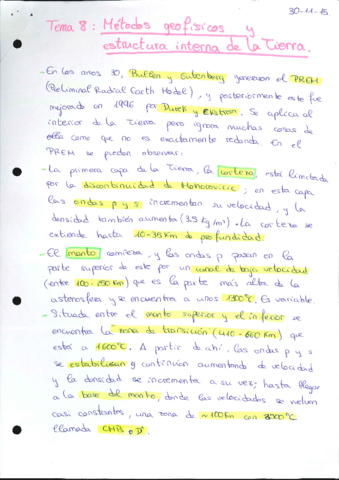 30-11-15
Tema 8: Métodos geofísicos y
estructura interna de la Tierra.
- En los anos 30, Bullen y Gutenberg generaron el PREM
(Preliminal Radial Earth Model), y posteriormente este fue
mejorado en 1996 por Durek y Ekstrom. Se aplica al
interior de la Tierra pero ignora muchas cosas de
ella como que no es exactamente redonda. En el
PREM se pueden observar:
- La primera capa de la Tierra, la corteza, está limitada
por la discontinuidad de Mohorovicic; en esta capa
las ondas p y s incrementan su velocidad, y la
densidad también aumenta (3,5 kg/m³). La corteza se
extiende hasta 10-35 Km de profundidad.
- El manto comienza, y las ondas p pasan en la
parte superior de este por un canal de baja velocidad
(entre 100-250 Km) que es la parte más alta de la
astenosfera y se encuentra a unos 1300°C. Es variable.
- Situada entre el manto superior y el inferior se
encuentra la zona de transición (410-660 Km) que
está a 1600°C. A partir de ahí, las ondas p y s
se estabilizan y continúan aumentando de velocidad
y la densidad se incrementa a su vez; hasta llegar
a la base del manto, donde las velocidades se vuelven
casi constantes, una zona de ~100 Km con 3000°C
llamada CMB o D".